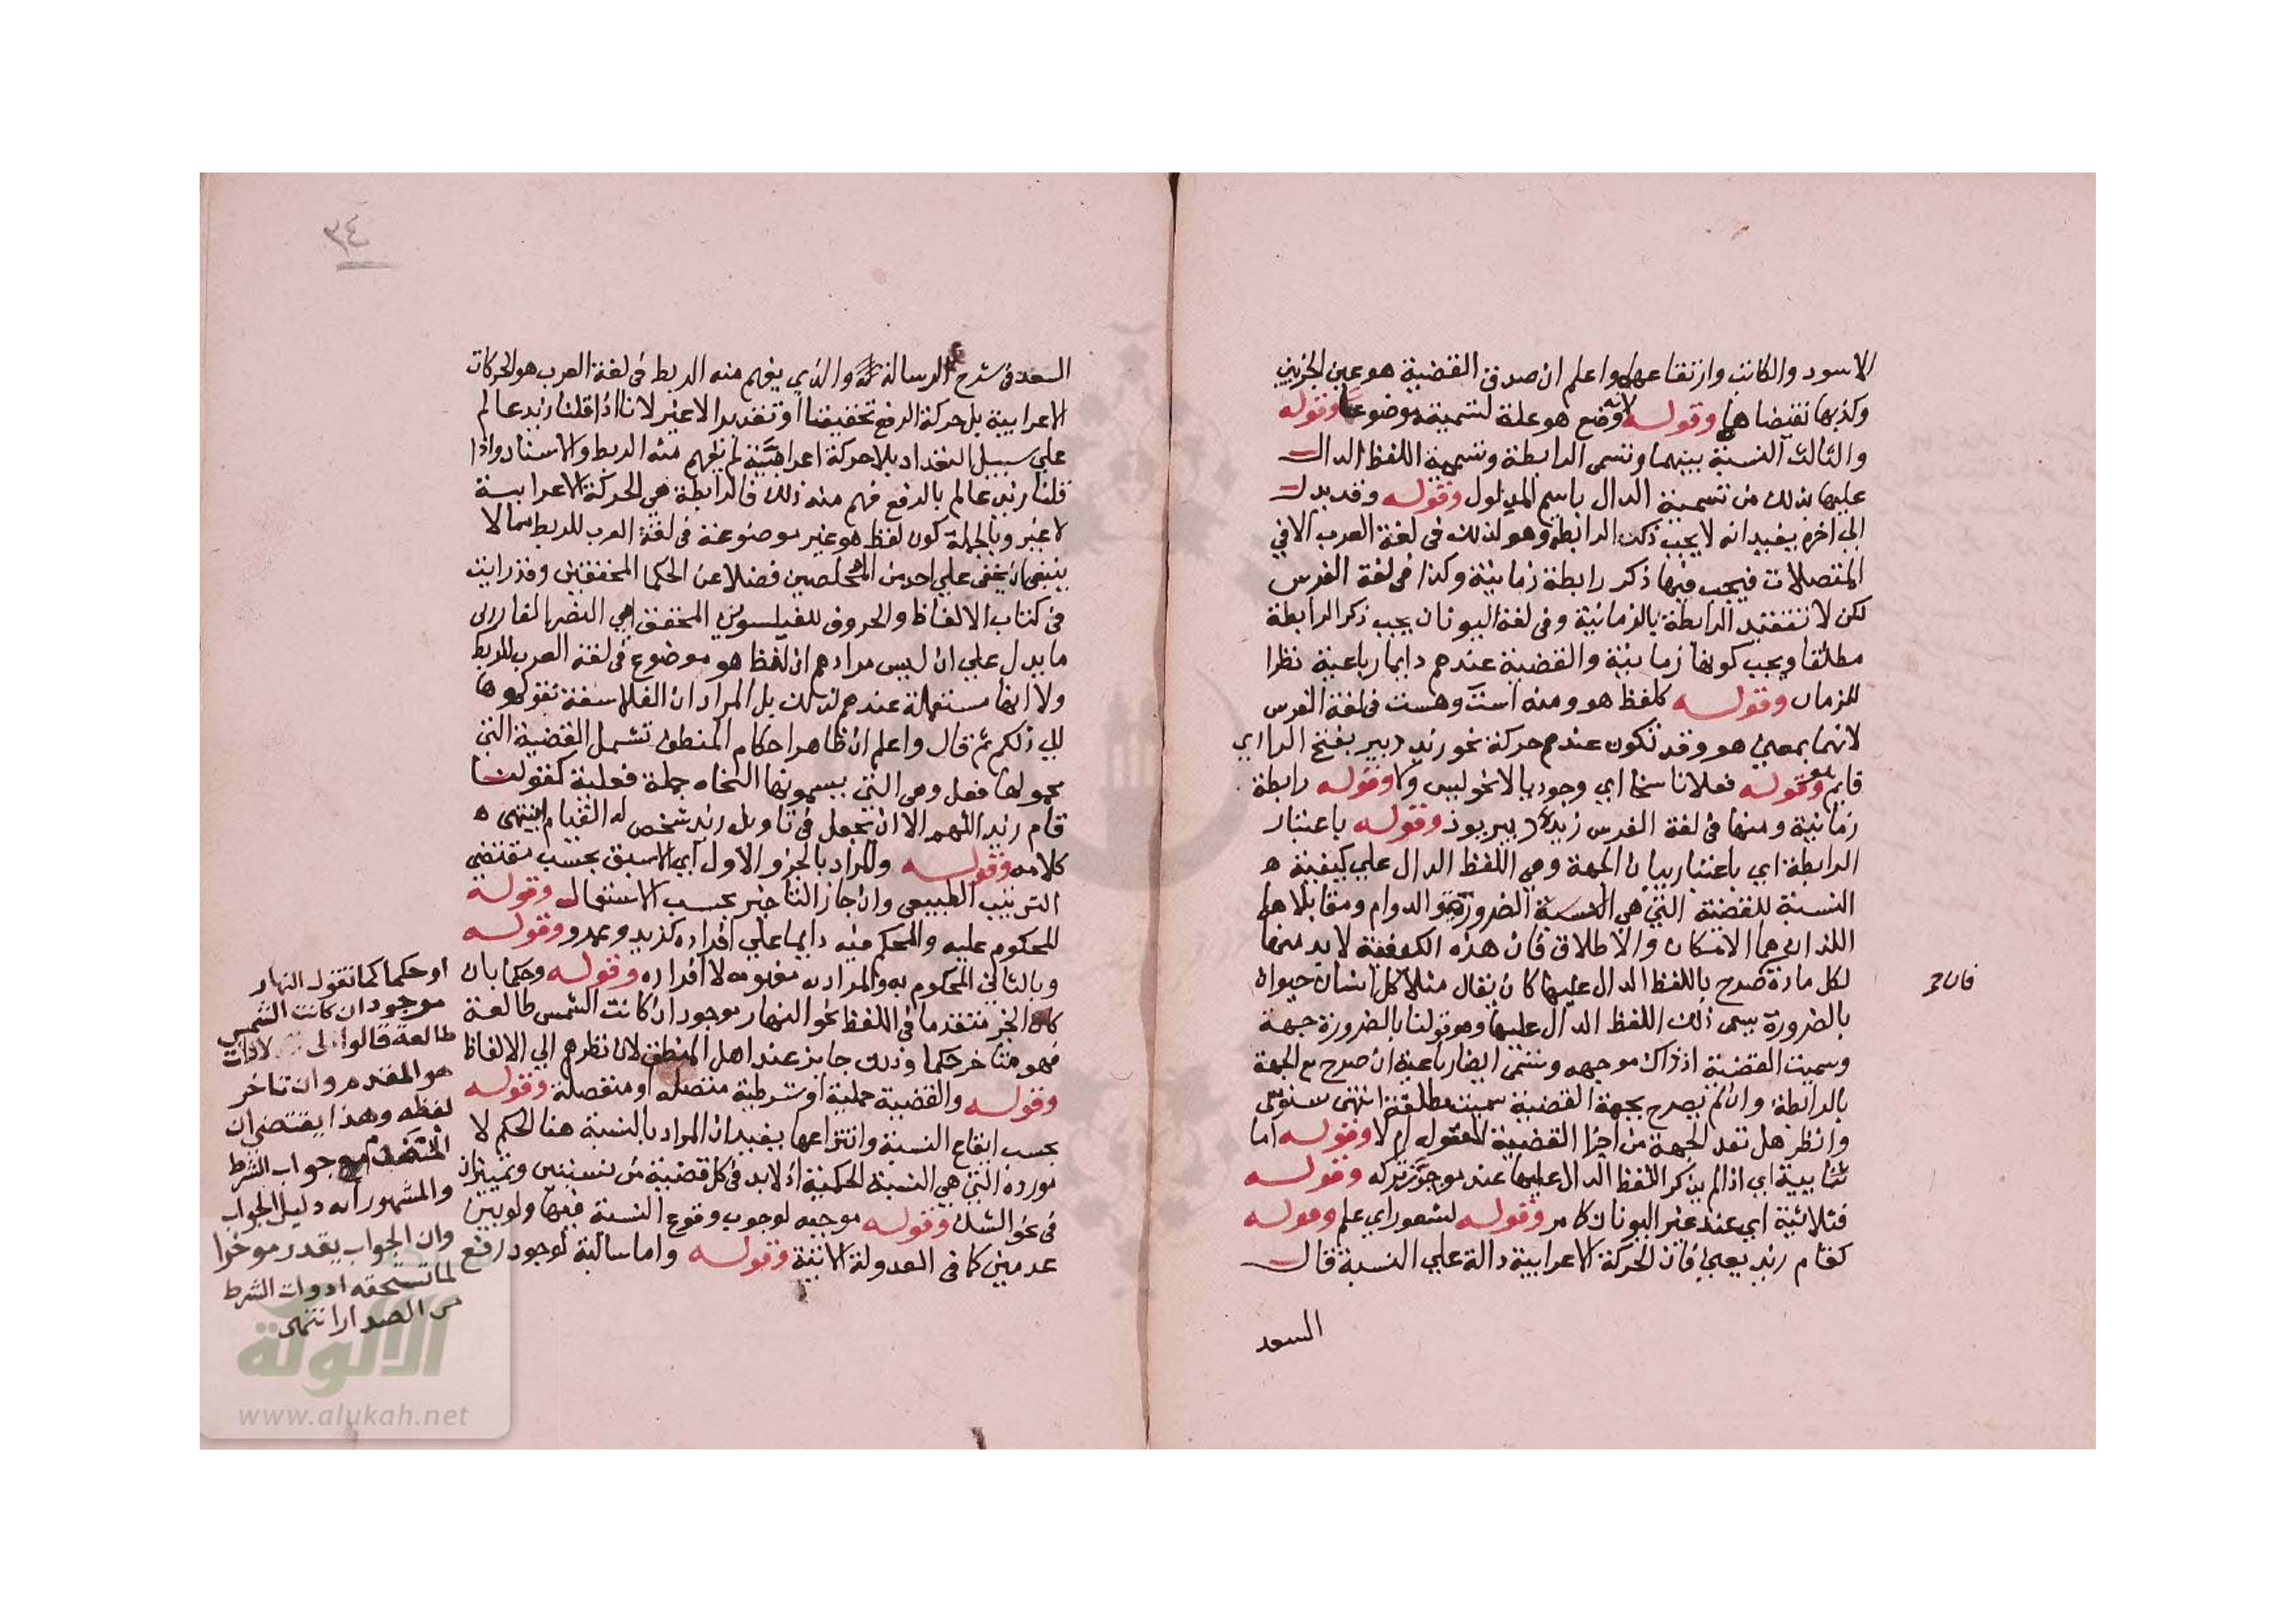 الاسود والكاتب وارتفاعهما واعلم ان صدق القضية هو عين الجزئين
وكذبها نقيضاها وقوله لانه وضع هو علة لتسميته موضوعا وقوله
والثالث النسبة بينهما وتسمى الرابطة وتسمية اللفظ الدال
عليها بذلك من تسمية الدال باسم المدلول وقوله وقد يدل
الى اخره يفيد انه لا يجب ذكر الرابطة وهو كذلك في لغة العرب الا في
المتصلات فيجب فيها ذكر رابطة زمانية وكذا في لغة الفرس
لكن لا تتقيد الرابطة بالزمانية وفي لغة اليونان يجب ذكر الرابطة
مطلقا ويجب كونها زمانية والقضية عندهم دايما رباعية نظرا
للزمان وقوله كلفظ هو ومنه است وهست في لغة الفرس
لانهما بمعنى هو وقد تكون عندهم حركة نحو زيد دبير بفتح الرا اي
قايم وقوله فعلا ناسخا اي وجوديا لا نحو ليس ولا وقوله رابطة
زمانية ومنها في لغة الفرس زيد دبير بوذ وقوله باعتبار
الرابطة اي باعتبار بيان الجهة وهي اللفظ الدال علي كيفية ه
النسبة للقضية التي هي النسبة الضرورة والدوام ومقابلاهما
اللذان هما الامكان والاطلاق فان هذه الكيفية لا بد منها
لكل مادة صرح باللفظ الدال عليها كان يقال مثلا كل انسان حيوان
فان
بالضرورة يسمى ذلك اللفظ الدال عليها وهو قولنا بالضرورة جهة
وسميت القضية اذ ذاك موجهه وتسمى ايضا رباعية ان صرح مع الجهة
بالرابطة وان لم يصرح بجهة القضية سميت مطلقة انتهى سنوسي
وانظر هل تعد الجهة من اجزا القضية المعقولة ام لا وقوله اما
ثنايية اي اذا لم يذكر اللفظ الدال عليها عند مجوز تركه وقوله
فثلاثية اي عند غير اليونان كما مر وقوله لشعور اي علم وقوله
كقام زيد يعني فان الحركة الاعرابية دالة علي النسبة قال
السعد
٣٤
السعد في شرح الرسالة والذي يفهم منه الربط في لغة العرب هو الحركات
الاعرابية بل حركة الرفع تحقيقا او تقديرا لا غير لانا اذا قلنا زيد عالم
علي سبيل التعداد بلا حركة اعرابية لم يفهم منه الربط والاسناد واذا
قلنا زيد عالم بالرفع فهم منه ذلك فالرابطة هي الحركة الاعرابية
لا غير وبالجملة كون لفظ هو غير موضوعة في لغة العرب للربط مما لا
ينبغي ان يخفى علي احد من المحصلين فضلا عن الحكما المحققين وقد رايت
في كتاب الالفاظ والحروف للفيلسوف المحقق ابي النصر الفارابى
ما يدل علي ان ليس مرادهم ان لفظ هو موضوع في لغة العرب للربط
ولا انها مستعملة عندهم لذلك بل المراد ان الفلاسفة نقولوها
الي ذلك ثم قال واعلم ان ظاهر احكام المنطق تشمل القضية التي
محمولها فعل وهي التي يسمونها النحاه جملة فعلية كقولنا
قام زيد اللهم الا ان يجعل في تاويل زيد شخص له القيام انتهى ه
كلامه وقوله والمراد بالجزو الاول اي الاسبق بحسب مقتضى
الترتيب الطبيعي وان جاز التاخير بحسب الاستعمال وقوله
المحكوم عليه والمحكم فيه دايما علي افراده كزيد وعمرو وقوله
وبالثاني المحكوم به والمراد به مفهومه لا افراده وقوله وحكما بان
كان الخبر متقدما في اللفظ نحو النهار موجود ان كانت الشمس طالعة
فهو متاخر حكما وذلك جايز عند اهل المنطق لان نظرهم الي الالفاظ
وقوله والقضية حملية او شرطية متصلة او منفصلة وقوله
بحسب ايقاع النسبة وانتزاعها يفيد ان المراد بالنسبة هنا الحكم لا
مورده التي هي النسبة الحكمية اذ لا بد في كل قضية من نسبتين وتميزان
في نحو الشك وقوله موجبه لوجوب وقوع النسبة فيها ولو بين
عدمين كما في المعدولة الاتية وقوله واما سالبة لوجود رفع
او حكما كما تقول النهار
موجود ان كانت الشمس
طالعة قالوا لان
هو المقدم وان تاخر
لفظه وهذا يقتضي ان
المتقدم جواب الشرط
والمشهور انه دليل الجواب
وان الجواب يقدر موخرا
لما تستحقه ادوات الشرط
من الصدارا انتهى
الألوكة
www.alukah.net